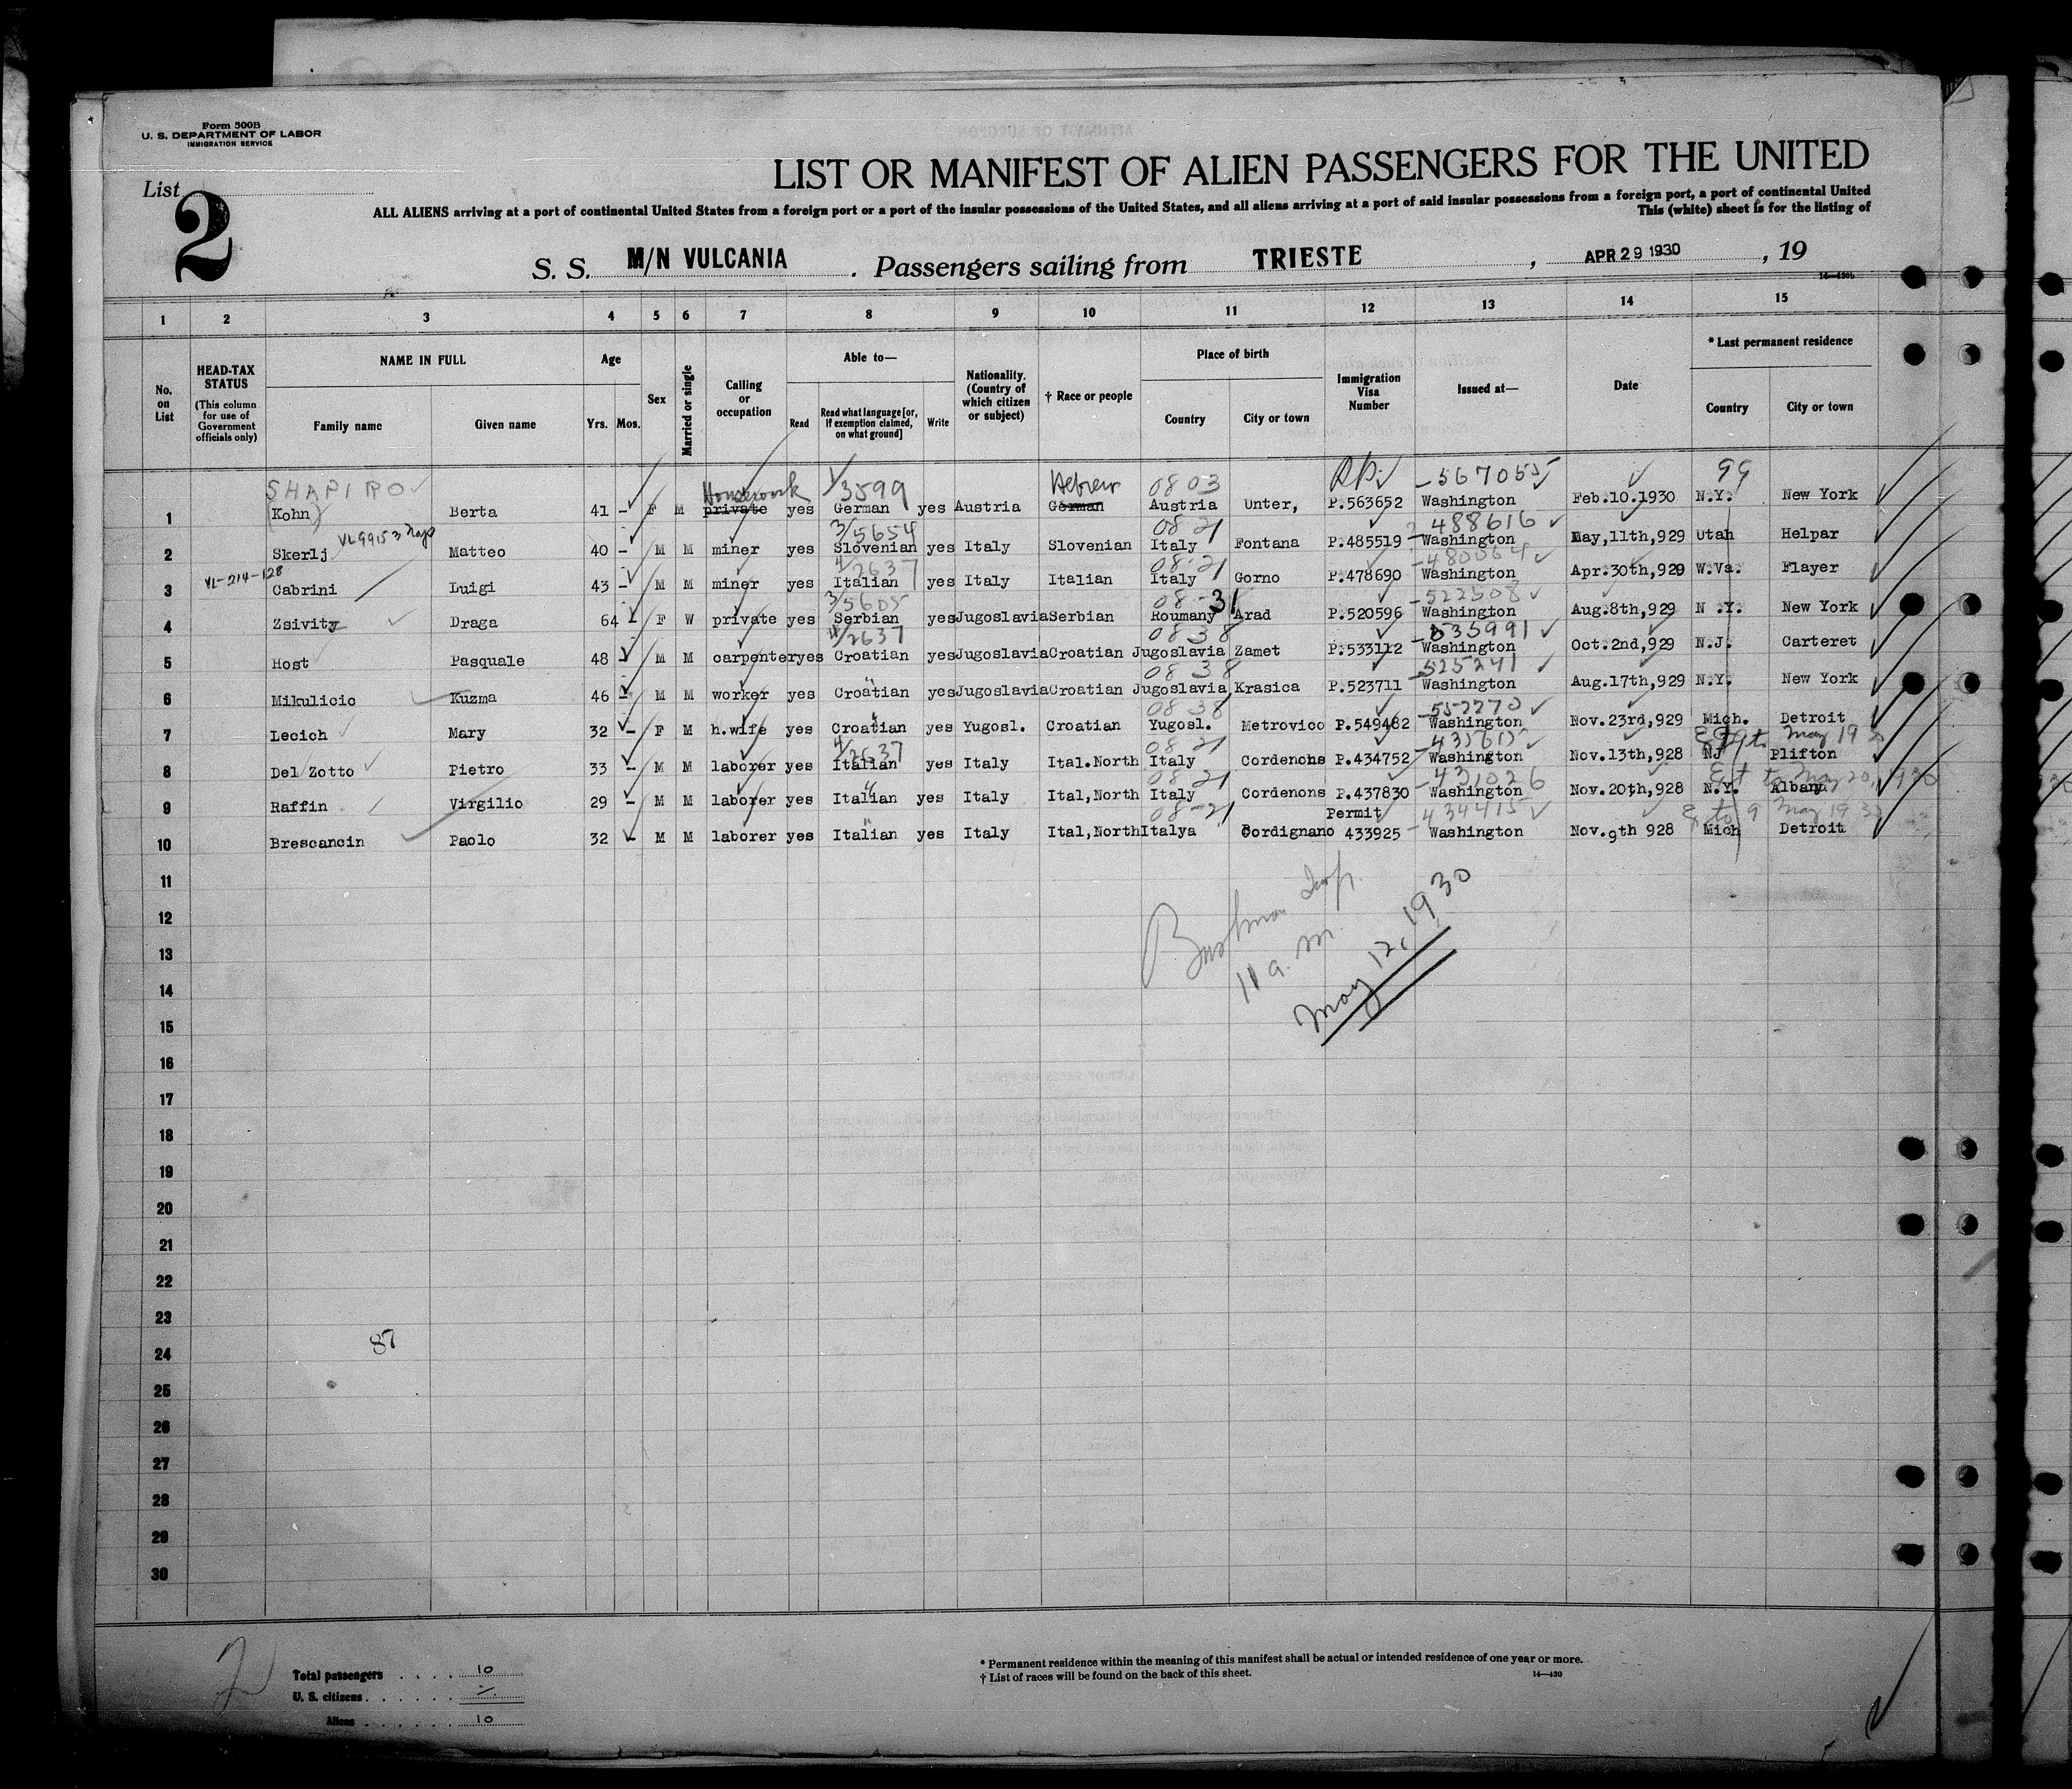 Form 500B
U. S. DEPARTMENT OF LABOR
IMMIGRATION SERVICE
List 2
LIST OR MANIFEST OF ALIEN PASSENGERS FOR THE UNITED
ALL ALIENS arriving at a port of continental United States from a foreign port or a port of the insular possessions of the United States, and all aliens arriving at a port of said insular possessions from a foreign port, a port of continental United
This (white) sheet is for the listing of
S. S. M/N VULCANIA . Passengers sailing from TRIESTE , APR 29 1930 , 19
14—430b
1 2 3 4 5 6 7 8 9 10 11 12 13 14 15
No. on List
HEAD-TAX STATUS (This column for use of Government officials only)
NAME IN FULL
Family name Given name
Age
Yrs. Mos.
Sex
Married or single
Calling or occupation
Able to—
Read Read what language [or, if exemption claimed, on what ground] Write
Nationality. (Country of which citizen or subject)
† Race or people
Place of birth
Country City or town
Immigration Visa Number
Issued at—
Date
* Last permanent residence
Country City or town
SHAPIRO Housework 1/3599 Hebrew 08 03 -567055 99
1 (Kohn) Berta 41 - F M private yes German yes Austria German Austria Unter, P.563652 Washington Feb.10.1930 N.Y. New York
VL9915 3/5654 08 21 488616
2 Skerlj Matteo 40 - M M miner yes Slovenian yes Italy Slovenian Italy Fontana P.485519 Washington May,11th,929 Utah Helpar
VL-214-128 4/2637 08-21
3 Cabrini Luigi 43 - M M miner yes Italian yes Italy Italian Italy Gorno P.478690 Washington Apr.30th,929 W.Va. Flayer
3/5605 08-31 -522508
4 Zsivity Draga 64 - F W private yes Serbian yes Jugoslavia Serbian Roumany Arad P.520596 Washington Aug.8th,929 N.Y. New York
11/2637 08 38 -535991
5 Host Pasquale 48 - M M carpenter yes Croatian yes Jugoslavia Croatian Jugoslavia Zamet P.533112 Washington Oct.2nd,929 N.J. Carteret
" 08 38 -525241
6 Mikulicic Kuzma 46 - M M worker yes Croatian yes Jugoslavia Croatian Jugoslavia Krasica P.523711 Washington Aug.17th,929 N.Y. New York
" 08 38 -552270
7 Lecich Mary 32 - F M h.wife yes Croatian yes Yugosl. Croatian Yugosl. Metrovico P.549482 Washington Nov.23rd,929 Mich. Detroit
4/2637 08 21 May 19
8 Del Zotto Pietro 33 - M M laborer yes Italian yes Italy Ital.North Italy Cordenons P.434752 Washington Nov.13th,928 NJ Plifton
" 08-21 -431026 Ext to May 20, 1930
9 Raffin Virgilio 29 - M M laborer yes Italian yes Italy Ital,North Italy Cordenons P.437830 Washington Nov.20th,928 N.Y. Albany
" 08-21 Permit 434415
10 Brescancin Paolo 32 - M M laborer yes Italian yes Italy Ital,North Italya Cordignano 433925 - Washington Nov.9th 928 Mich Detroit
11
12
13
14
15
16
17
18
19
20
21
22
23
24
25
26
27
28
29
30
Insp.
11 a.m.
May 12, 1930
87
2
Total passengers . . . . 10
U. S. citizens . . . . . . -
Aliens . . . . . . 10
* Permanent residence within the meaning of this manifest shall be actual or intended residence of one year or more.
† List of races will be found on the back of this sheet.
14—430